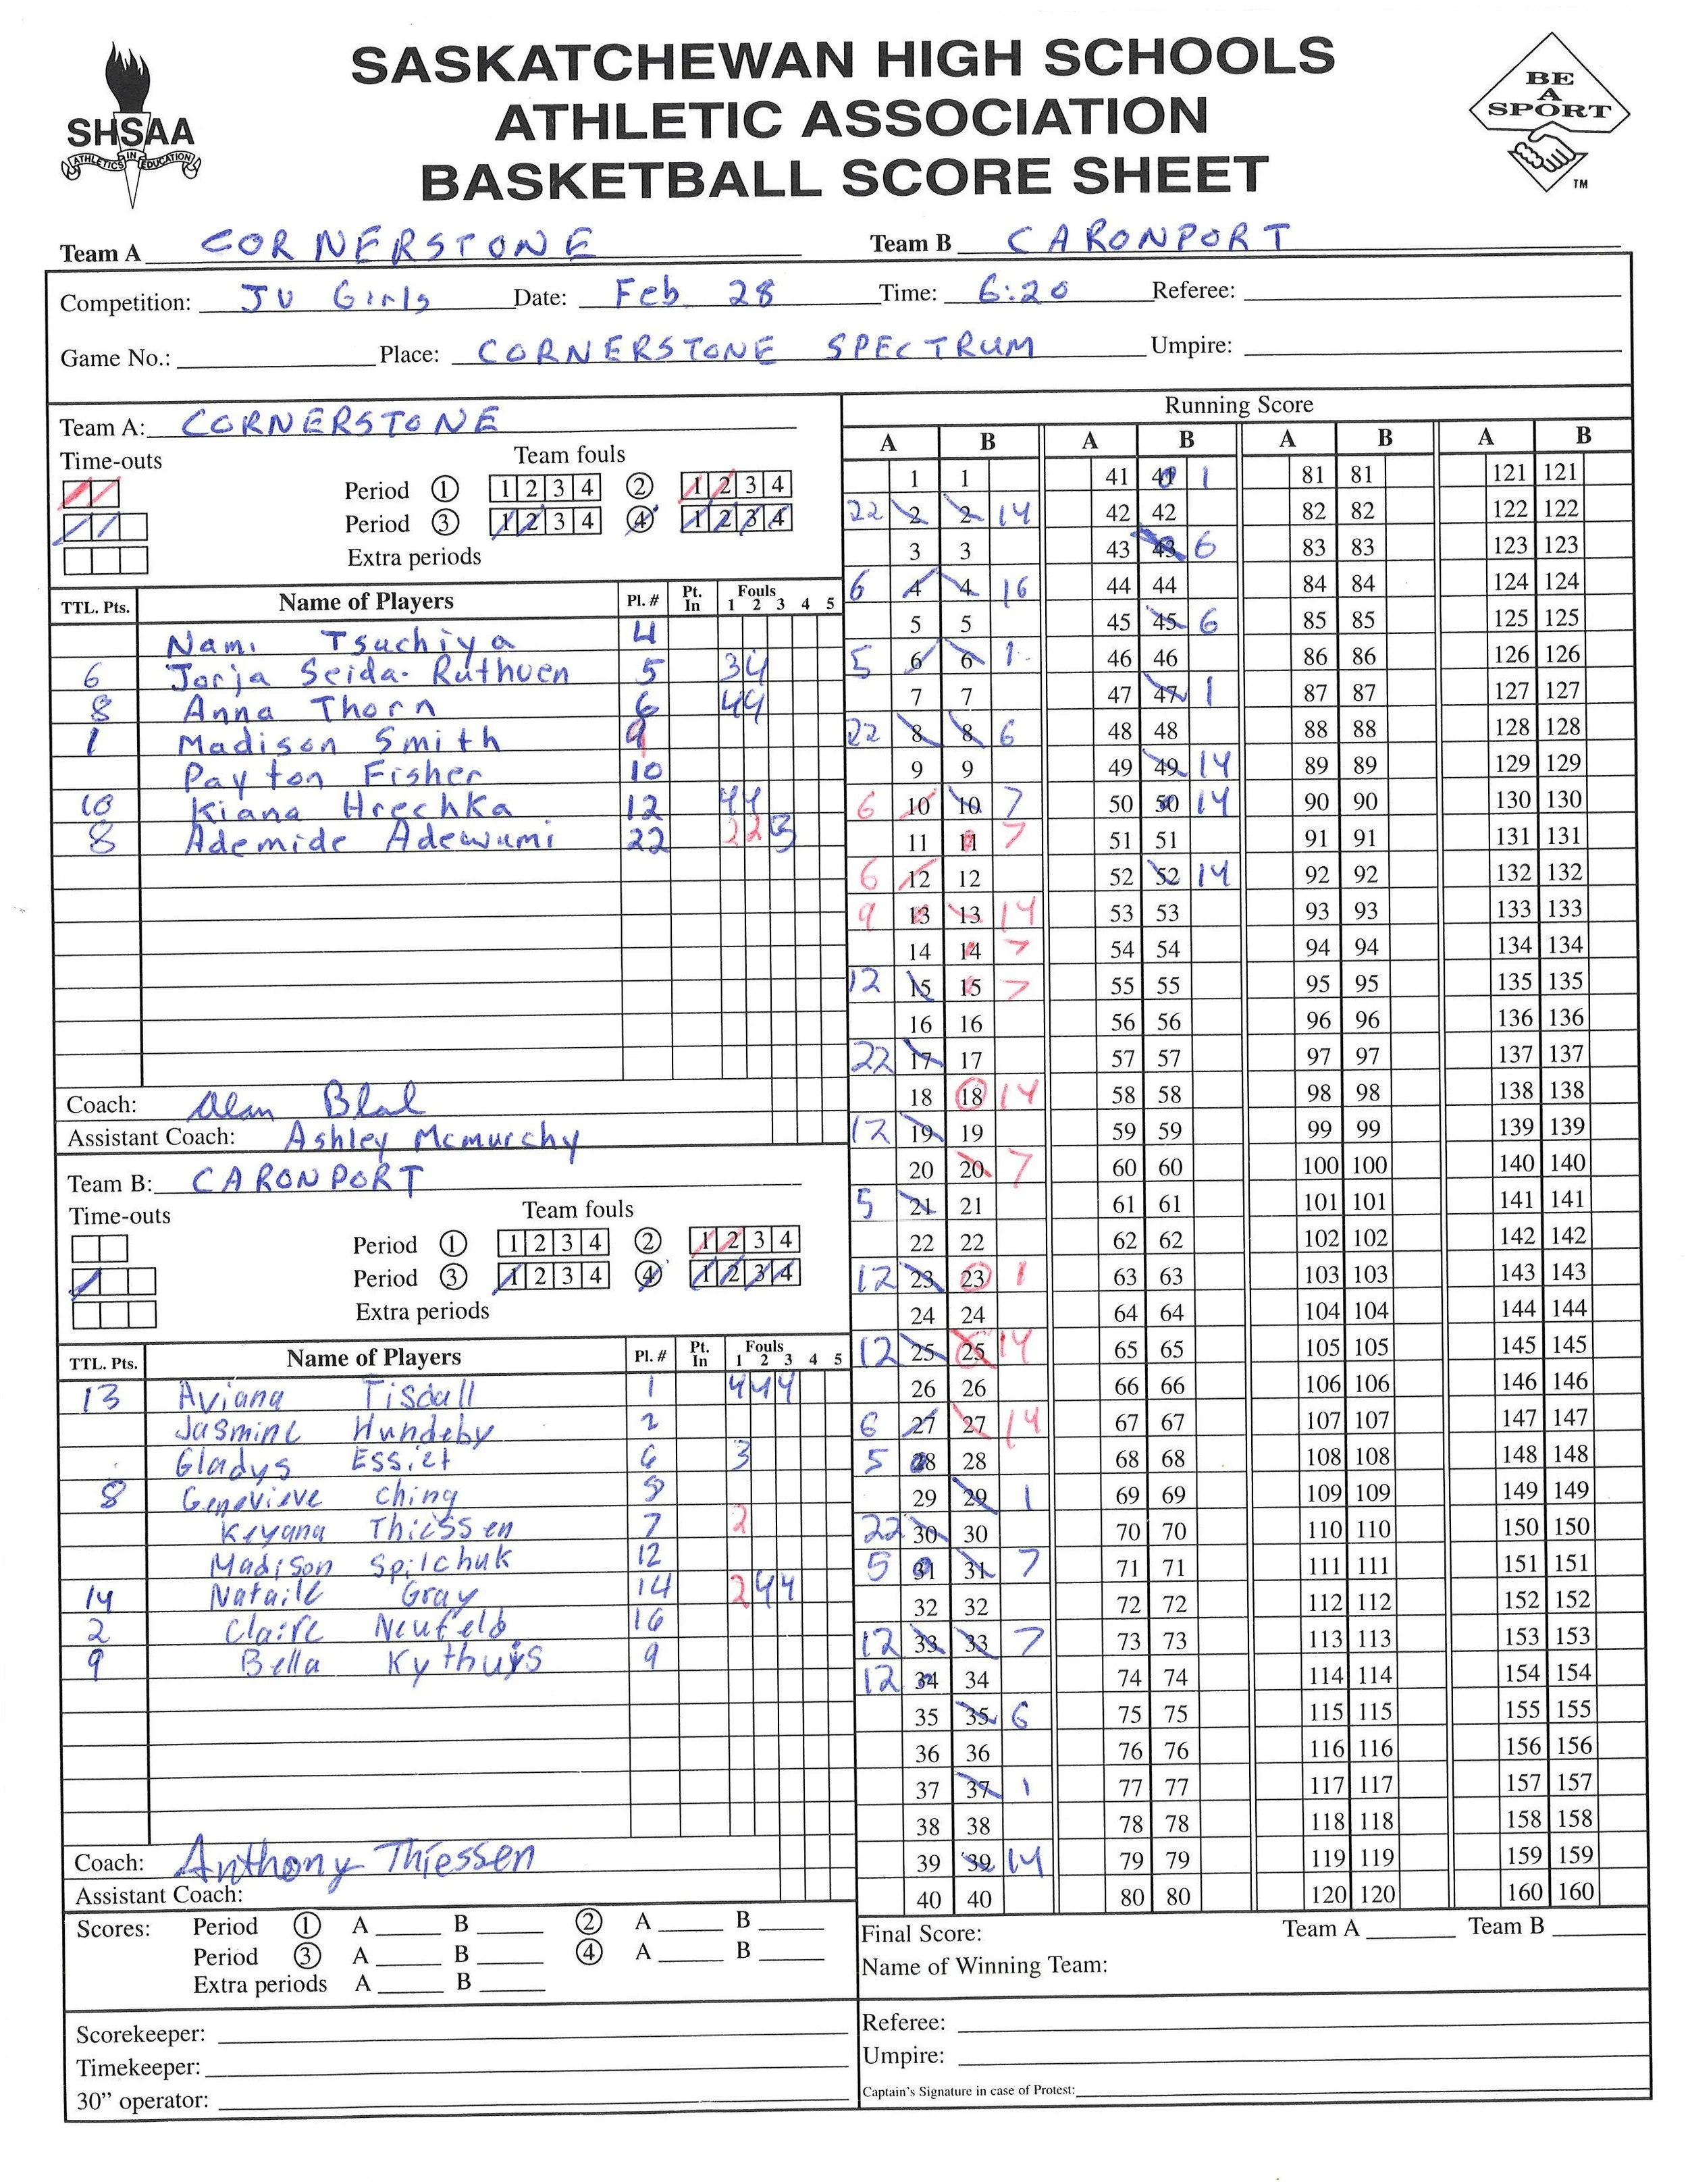 SASKATCHEWAN HIGH SCHOOLS
ATHLETIC ASSOCIATION
BASKETBALL SCORE SHEET
SHSAA
ATHLETICS IN EDUCATION
BE
A
SPORT
TM
Team A CORNERSTONE Team B CARONPORT
Competition: JV Girls Date: Feb 28 Time: 6:20 Referee:
Game No.: Place: CORNERSTONE SPECTRUM Umpire:
Team A: CORNERSTONE
Time-outs Team fouls
Period 1 1 2 3 4 2 1 2 3 4
Period 3 1 2 3 4 4 1 2 3 4
Extra periods
TTL. Pts. Name of Players Pl. # Pt. In Fouls 1 2 3 4 5
Nami Tsuchiya 4
6 Jorja Seida-Ruthven 5 3 4
8 Anna Thorn 6 4 4
1 Madison Smith 9
Payton Fisher 10
10 Kiana Hrechka 12 4 4
8 Ademide Adewumi 22 2 2 3
Coach: Alan
Assistant Coach: Ashley Mcmurchy
Team B: CARONPORT
Time-outs Team fouls
Period 1 1 2 3 4 2 1 2 3 4
Period 3 1 2 3 4 4 1 2 3 4
Extra periods
TTL. Pts. Name of Players Pl. # Pt. In Fouls 1 2 3 4 5
13 Aviana Tisdall 1 4 4 4
Jasmine Hundeby 2
Gladys Essiet 6 3
8 Genevieve Ching
Keyana Thiessen 7 2
Madison Spilchuk 12
14 Natailе Gray 14 2 4 4
2 Claire Neufeld 16
9 Bella 9
Coach: Anthony Thiessen
Assistant Coach:
Scores: Period 1 A B 2 A B
Period 3 A B 4 A B
Extra periods A B
Scorekeeper:
Timekeeper:
30” operator:
Running Score
A B A B A B A B
1 1 41 41 1 81 81 121 121
22 2 2 14 42 42 82 82 122 122
3 3 43 43 6 83 83 123 123
6 4 4 16 44 44 84 84 124 124
5 5 45 45 6 85 85 125 125
5 6 6 1 46 46 86 86 126 126
7 7 47 47 1 87 87 127 127
22 8 8 6 48 48 88 88 128 128
9 9 49 49 14 89 89 129 129
6 10 10 7 50 50 14 90 90 130 130
11 11 7 51 51 91 91 131 131
6 12 12 52 52 14 92 92 132 132
9 13 13 14 53 53 93 93 133 133
14 14 7 54 54 94 94 134 134
12 15 15 7 55 55 95 95 135 135
16 16 56 56 96 96 136 136
22 17 17 57 57 97 97 137 137
18 18 14 58 58 98 98 138 138
12 19 19 59 59 99 99 139 139
20 20 7 60 60 100 100 140 140
5 21 21 61 61 101 101 141 141
22 22 62 62 102 102 142 142
12 23 23 1 63 63 103 103 143 143
24 24 64 64 104 104 144 144
12 25 25 14 65 65 105 105 145 145
26 26 66 66 106 106 146 146
6 27 27 14 67 67 107 107 147 147
5 28 28 68 68 108 108 148 148
29 29 1 69 69 109 109 149 149
22 30 30 70 70 110 110 150 150
5 31 31 7 71 71 111 111 151 151
32 32 72 72 112 112 152 152
12 33 33 7 73 73 113 113 153 153
12 34 34 74 74 114 114 154 154
35 35 6 75 75 115 115 155 155
36 36 76 76 116 116 156 156
37 37 1 77 77 117 117 157 157
38 38 78 78 118 118 158 158
39 39 14 79 79 119 119 159 159
40 40 80 80 120 120 160 160
Final Score: Team A Team B
Name of Winning Team:
Referee:
Umpire:
Captain's Signature in case of Protest: